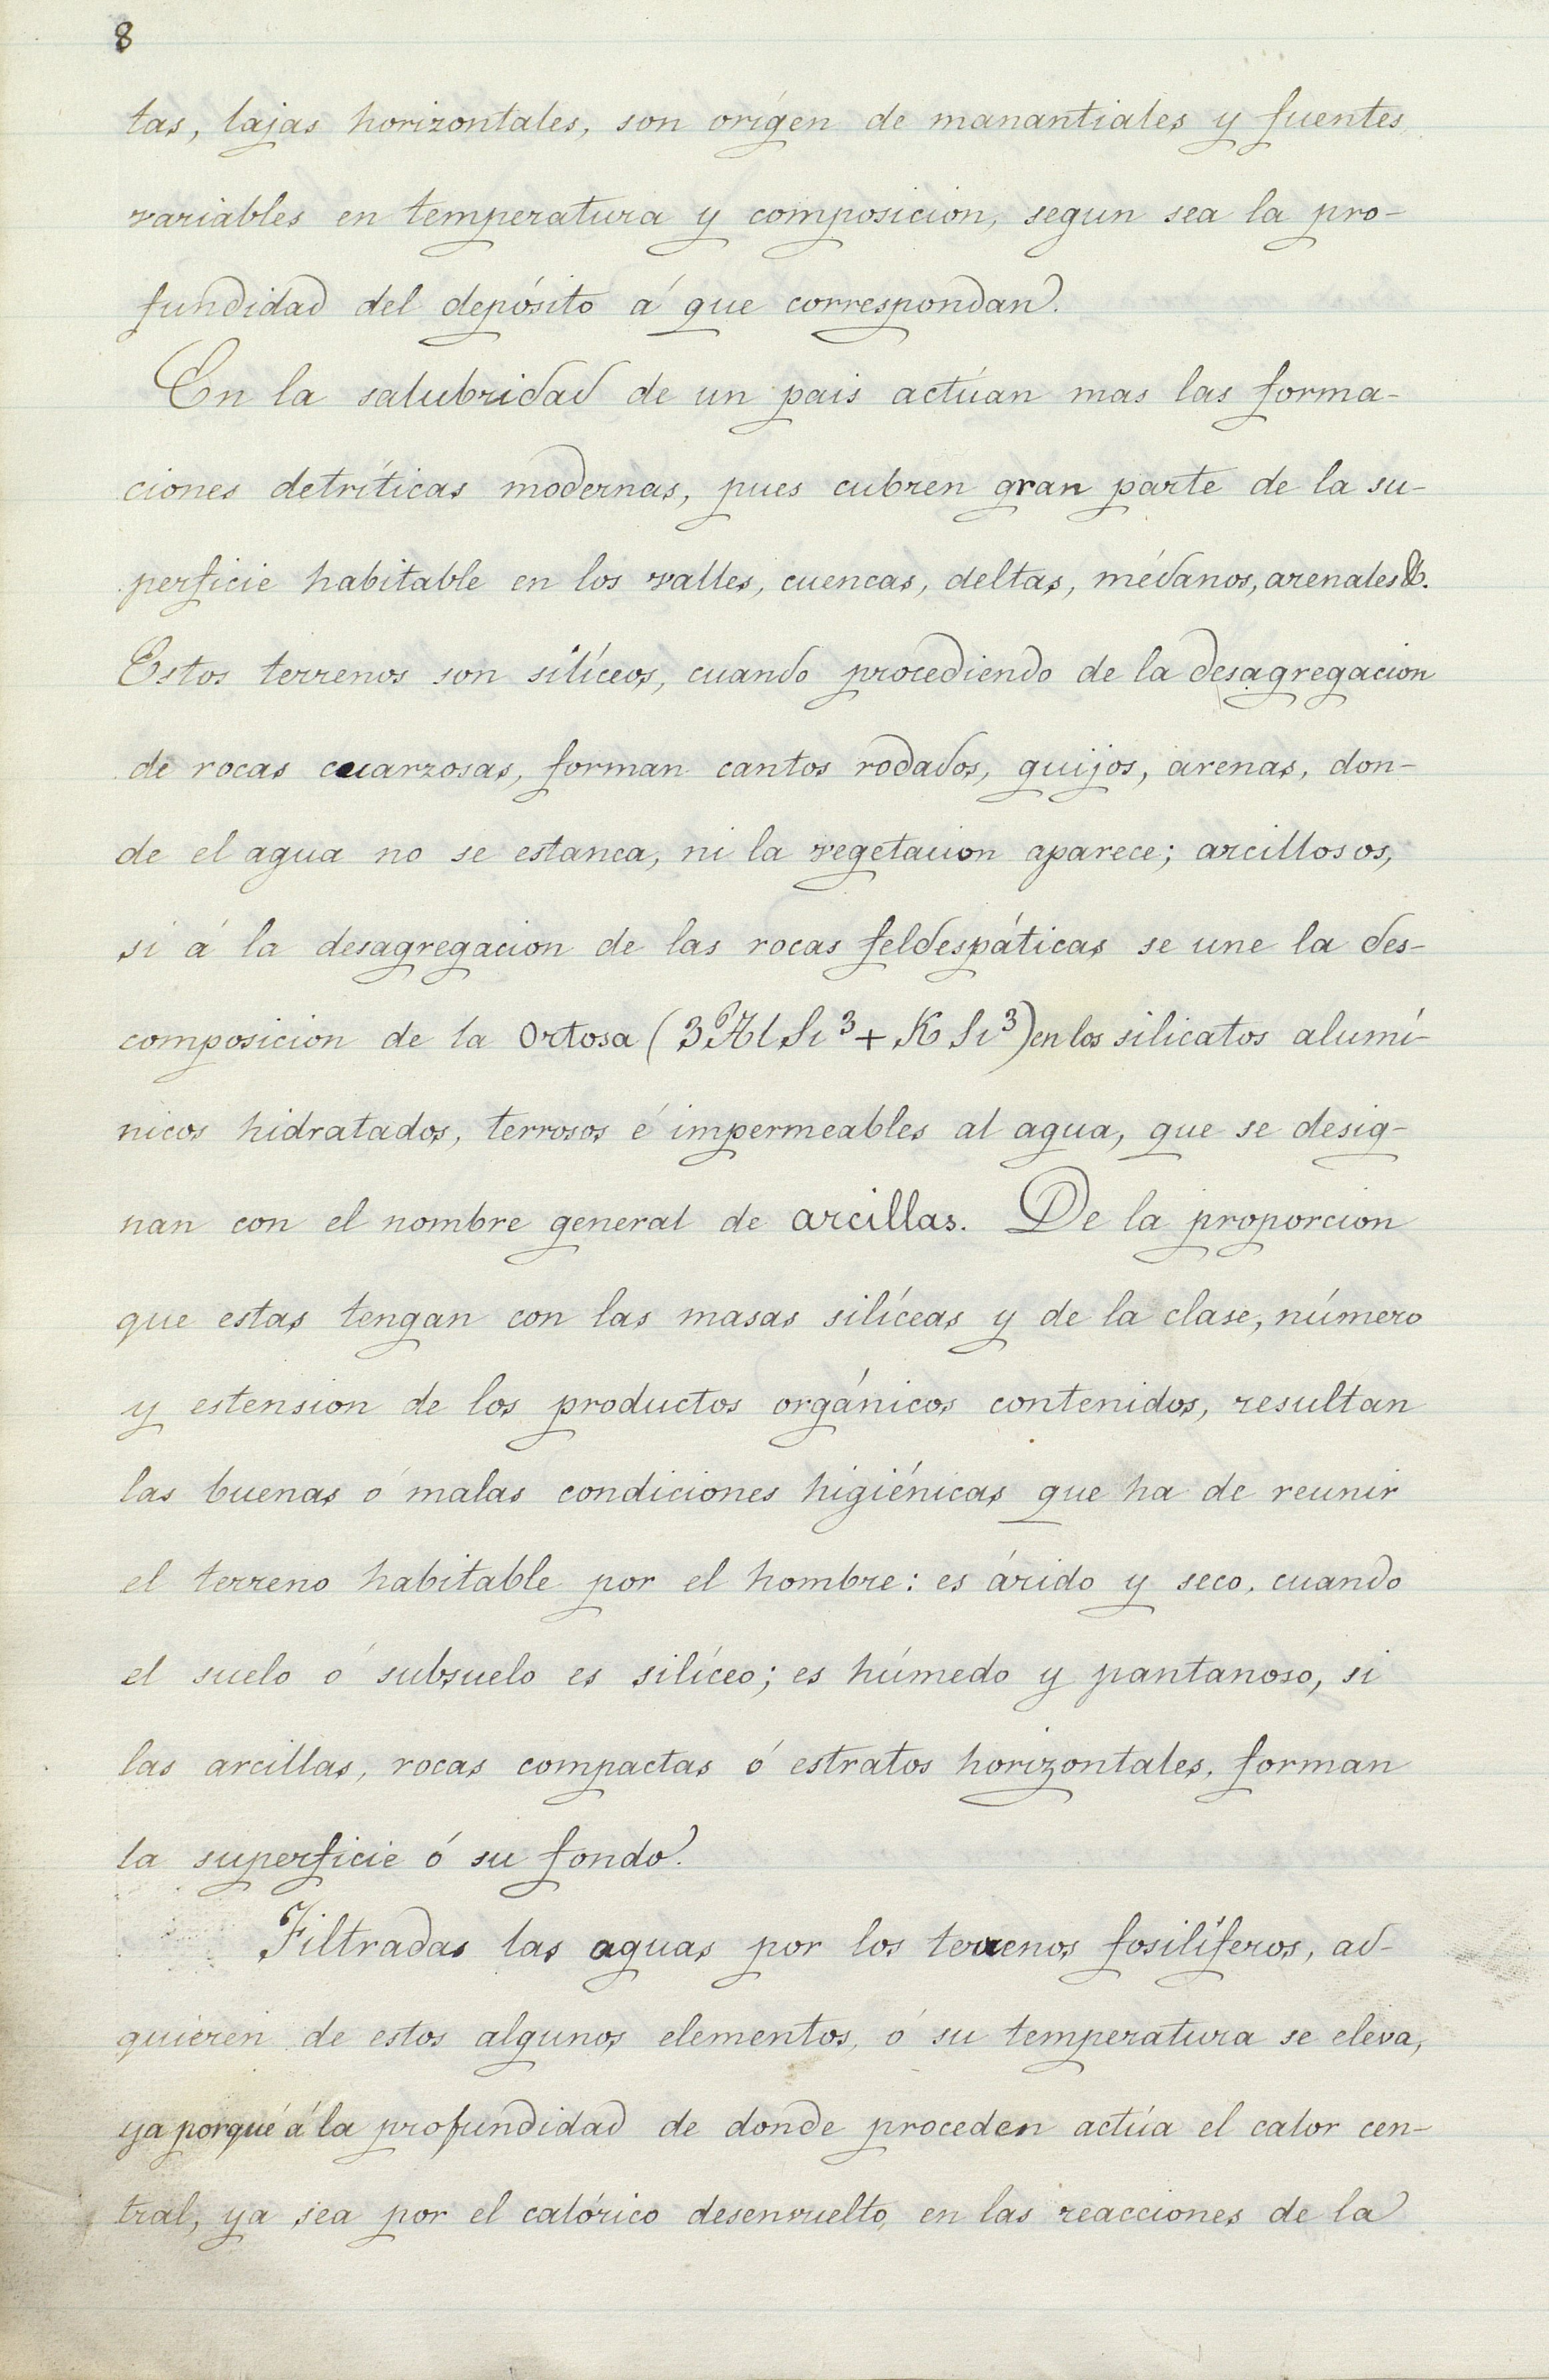 8
tas, lajas horizontales, son orígen de manantiales y fuentes
variables en temperatura y composicion, segun sea la pro-
fundidad del depósito á que correspondan.
En la salubridad de un pais actúan mas las forma-
ciones detríticas modernas, pues cubren gran parte de la su-
perficie habitable en los valles, cuencas, deltas, médanos, arenales &.
Estos terrenos son silíceos, cuando procediendo de la desagregacion
de rocas cuarzosas, forman cantos rodados, guijos, arenas, don-
de el agua no se estanca, ni la vegetacion aparece; arcillosos,
si á la desagregacion de las rocas feldespáticas se une la des-
composicion de la Ortosa (3 Al Si³ + K Si³) en los silicatos alumí-
nicos hidratados, terrosos é impermeables al agua, que se desig-
nan con el nombre general de arcillas. De la proporcion
que estas tengan con las masas silíceas y de la clase, número
y estension de los productos orgánicos contenidos, resultan
las buenas ó malas condiciones higiénicas que ha de reunir
el terreno habitable por el hombre: es árido y seco, cuando
el suelo ó subsuelo es silíceo; es húmedo y pantanoso, si
las arcillas, rocas compactas ó estratos horizontales, forman
la superficie ó su fondo.
Filtradas las aguas por los terrenos fosilíferos, ad-
quieren de estos algunos elementos, ó su temperatura se eleva,
ya porqué á la profundidad de donde proceden actúa el calor cen-
tral, ya sea por el calórico desenvuelto, en las reacciones de la